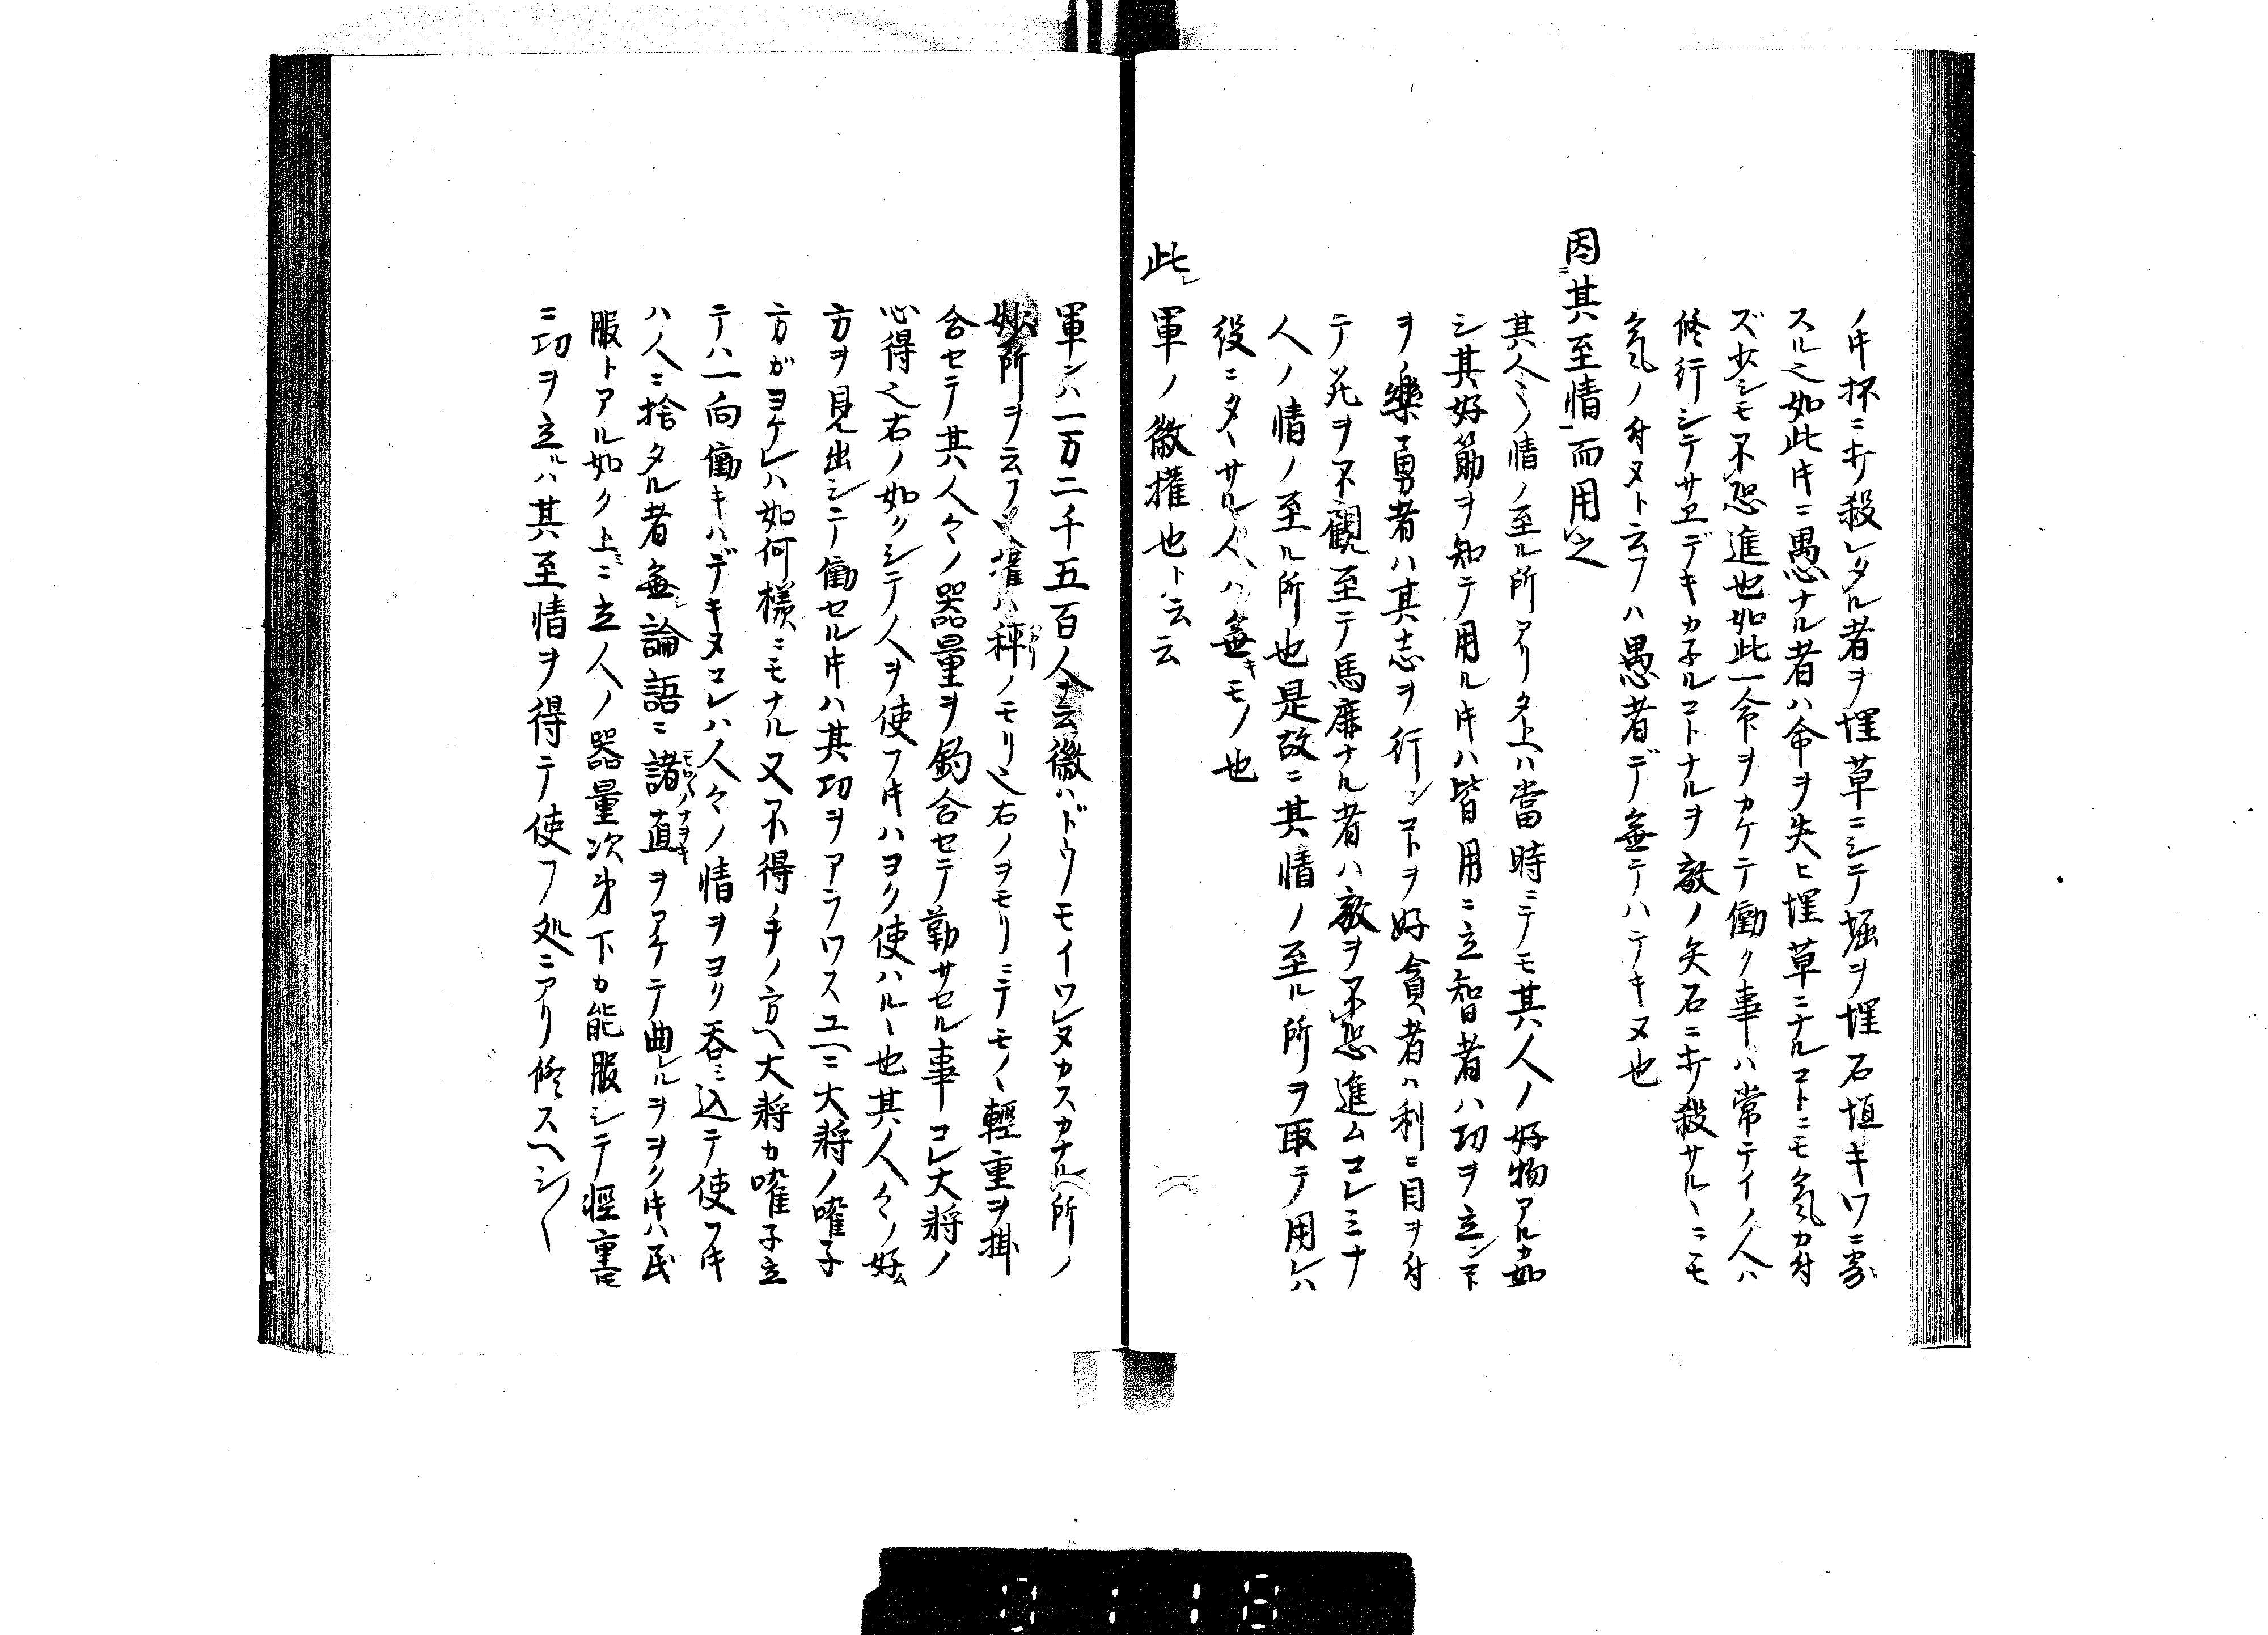 ノ寸杯ニキ殺レタル者ヲ埋草ニシテ堀ヲ埋石垣キワニ寄
スル也如此寸ニ愚ナル者ハ命ヲ失ヒ埋草ニナルヿニモ氣カ付
ズ少シモ不恐進也如此一命ヲカケテ働ク事ハ常テイノ人ハ
修行シテサヱデキカ子ルコトナルヲ敵ノ矢石ニキ殺サルヽニモ
氣ノ付ヌト云フハ愚者デ無テハテキヌ也
因其至情而用之
其人〻ノ情ノ至ル所アリタ上ハ當時ニテモ其人ノ好物アルカ如
シ其好節ヲ知テ用ル寸ハ皆用ニ立智者ハ功ヲ立ンヿ
ヲ樂勇者ハ其志ヲ行ンヿヲ好貪者ハ利ニ目ヲ付
テ死ヲ不観至テ馬鹿ナル者ハ敵ヲ不恐進ムコレミナ
人ノ情ノ至ル所也是故ニ其情ノ至ル所ヲ取テ用レハ
役ニタヽサル人ハ無キモノ也
此レ軍ノ微権也ト云云
軍ンハ一万二千五百人ナ云微ハドウモイワレヌカスカナル所ノ
妙所ヲ云フ又権ハ秤ノモリ也右ノヲモリニテモノヽ輕重ヲ掛
合セテ其人々ノ器量ヲ釣合セテ勤サセル事コレ大将ノ
心得也右ノ如クシテ人ヲ使フ寸ハヨク使ハルヽ也其人々ノ好ム
方ヲ見出シテ働セル寸ハ其功ヲアラワスユヘニ大将ノ嚁子
方ガヨケレハ如何様ニモナル又不得手ノ方ヘ大将カ嚁子立
テハ一向働キハデキヌコレハ人々ノ情ヲヨク呑ミ込テ使フ寸
ハ人ニ捨タル者無シ論語ニ諸直ヲアケテ曲レルヲヲク寸ハ民
服トアル如ク上ニ立人ノ器量次第下カ能服シテ輕重モ
ニ功ヲ立ルハ其至情ヲ得テ使フ処ニアリ修スヘシ〱